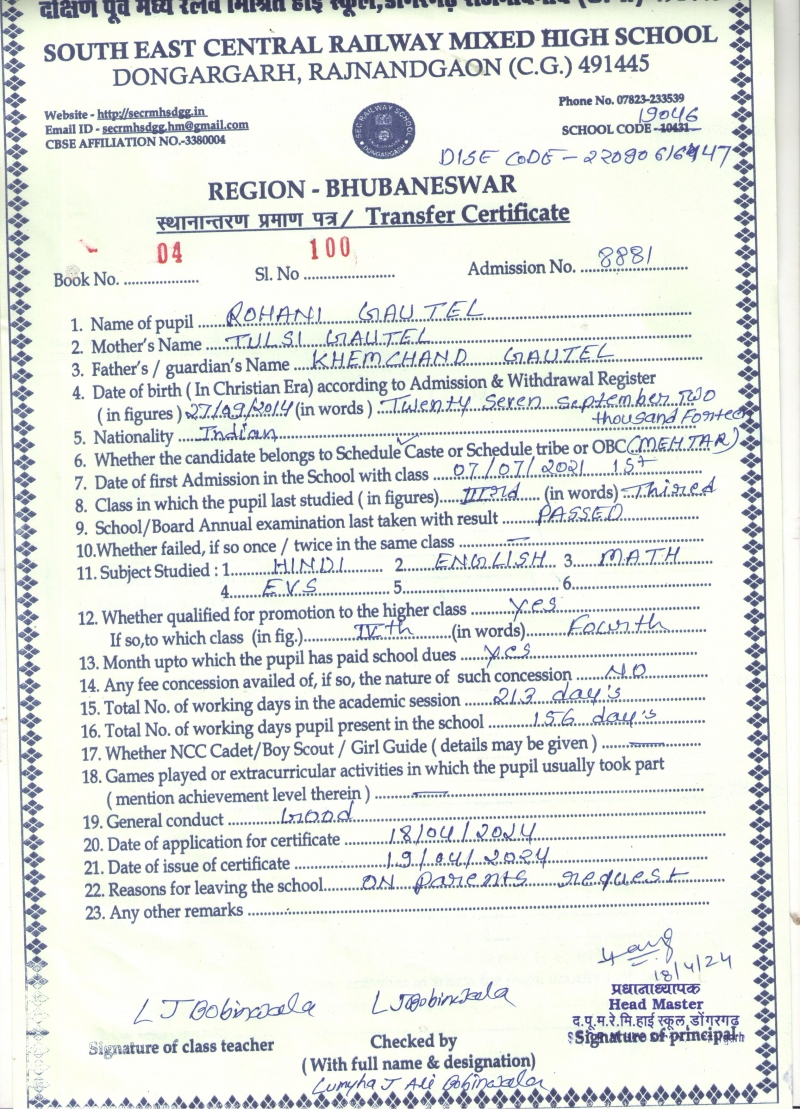 दक्षिण पूर्व मध्य रेलवे मिश्रित हाई स्कूल,
SOUTH EAST CENTRAL RAILWAY MIXED HIGH SCHOOL
DONGARGARH, RAJNANDGAON (C.G.) 491445
Website - http://secrmhsdgg.in
Phone No. 07823-233539
Email ID - secrmhsdgg.hm@gmail.com
19046
SCHOOL CODE - 10431
CBSE AFFILIATION NO.-3380004
SEC RAILWAY SCHOOL
DONGARGARH
DISE CODE -
REGION - BHUBANESWAR
स्थानान्तरण प्रमाण पत्र / Transfer Certificate
Book No. 04 Sl. No 100 Admission No. 8881
1. Name of pupil ROHANI GAUTEL
2. Mother's Name TULSI GAUTEL
3. Father's / guardian's Name KHEMCHAND GAUTEL
4. Date of birth ( In Christian Era) according to Admission & Withdrawal Register
( in figures ) 27/09/2014 (in words ) Twenty seven september two
thousand Forteen
5. Nationality Indian
6. Whether the candidate belongs to Schedule Caste or Schedule tribe or OBC (MEHTAR)
7. Date of first Admission in the School with class 07/07/2021 1st
8. Class in which the pupil last studied ( in figures) IIIrd (in words) Thired
9. School/Board Annual examination last taken with result PASSED
10.Whether failed, if so once / twice in the same class —
11. Subject Studied : 1 HINDI 2 ENGLISH 3 MATH
4 EVS 5 6
12. Whether qualified for promotion to the higher class yes
If so,to which class (in fig.) IVth (in words) Fourth
13. Month upto which the pupil has paid school dues yes
14. Any fee concession availed of, if so, the nature of such concession NO
15. Total No. of working days in the academic session 213 day's
16. Total No. of working days pupil present in the school 156 day's
17. Whether NCC Cadet/Boy Scout / Girl Guide ( details may be given ) —
18. Games played or extracurricular activities in which the pupil usually took part
( mention achievement level therein ) —
19. General conduct Good
20. Date of application for certificate 18/04/2024
21. Date of issue of certificate 19/04/2024
22. Reasons for leaving the school ON parents request
23. Any other remarks
18/4/24
प्रधानाध्यापक
Head Master
द.पू.म.रे.मि.हाई स्कूल,डोंगरगढ़
L J Bobinwala
L J Bobinwala
Signature of class teacher
Checked by
Signature of principal
( With full name & designation)